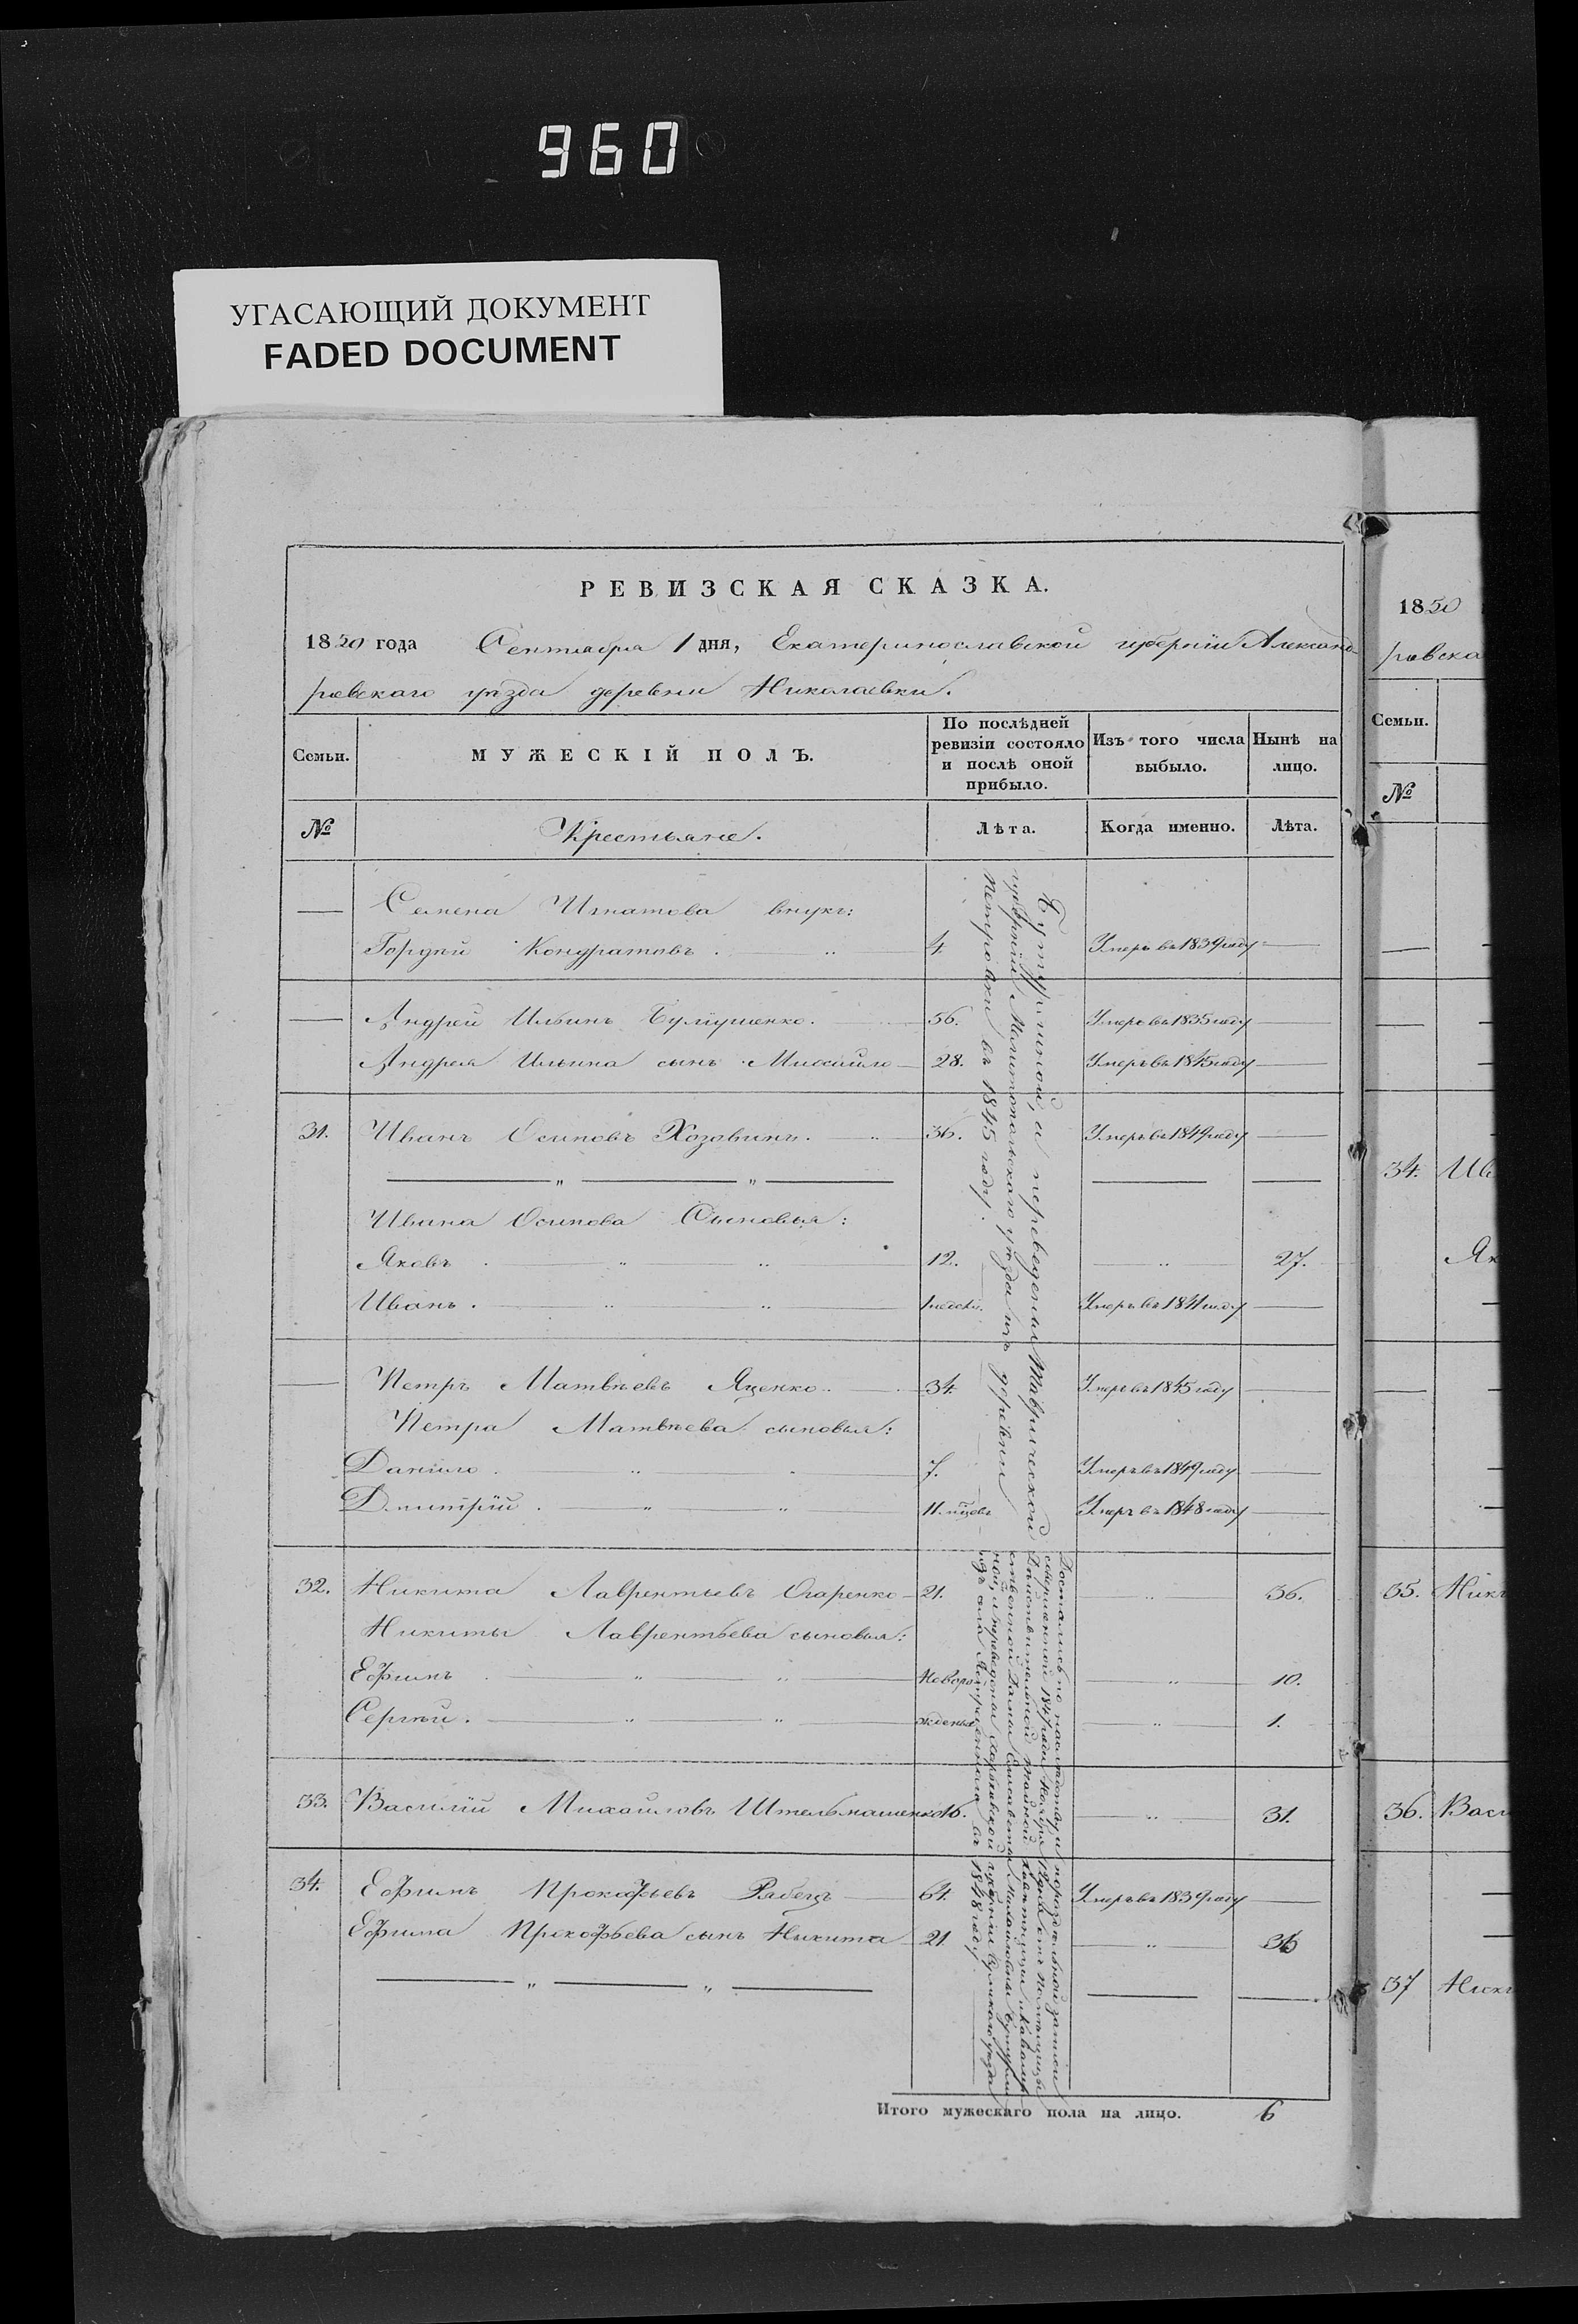 960
УГАСАЮЩИЙ ДОКУМЕНТ
FADED DOCUMENT
РЕВИЗСКАЯ СКАЗКА.
1850 года Сентября 1 дня, Екатеринославской губернiи Александ-
ровскаго уѣзда деревни Николаевки.
Семьи.
МУЖЕСКІЙ ПОЛЪ.
По послѣдней ревизіи состояло и послѣ оной прибыло.
Изъ того числа выбыло.
Нынѣ на лицо.
№ Крестьяне. Лѣта. Когда именно. Лѣта.
— Семена Игнатова внукъ:
Гордѣй Кондратовъ. 4. Умеръ въ 1839 году —
— Андрей Ильинъ 56. Умеръ въ 1835 году —
Андрея Ильина сынъ Михайло 28. Умеръ въ 1845 году —
31. Иванъ Осиповъ Хозовинъ. 36. Умеръ въ 1849 году —
Ивана Осипова Сыновья:
Яковъ . 12. 27.
Иванъ . 1 недѣли. Умеръ въ 1841 году —
— Петръ Матвѣевъ Яценко. 34. Умеръ въ 1845 году —
Петра Матвѣева сыновья:
Данило . 7. Умеръ въ 1849 году —
Дмитрій . 11. мцовъ Умеръ въ 1848 году —
32. Никита Лаврентьевъ Огаренко 21. 36.
Никиты Лаврентьева сыновья:
Ефимъ . Новоро- 10.
Сергѣй . жденыя 1.
33. Василій Михайловъ Штельмашенко 16. 31.
34. Ефимъ Прокофьевъ Рябецъ 64. Умеръ въ 1839 году —
Ефима Прокофьева сынъ Никита 21. 36
Бутурлиной, а переведены Таврической
губерніи Мелитопольскаго уѣзда изъ деревни
Петровки въ 1845 году.
Достались по наслѣдству и
совершенной 1847 года Ноября
Дѣйствительной Тайной
ственной Дамы Елисаветы Михайловны Бутурли
ной, и переведены Харьковской губерніи уѣзда
изъ села въ 1848 году.
Итого мужескаго пола на лицо. 6
1850
ровска
Семьи.
№
34. Ив
Як
35. Ники
36. Васи
37 Ники